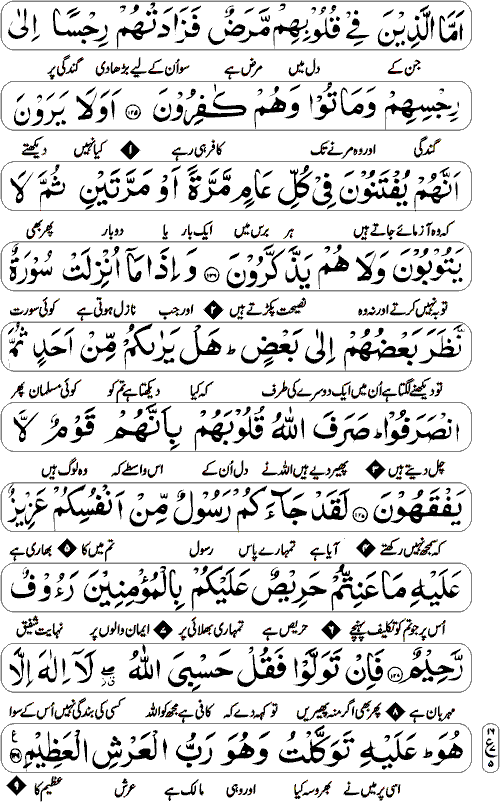 اَمَّا الَّذِيْنَ فِيْ قُلُوْبِهِمْ مَّرَضٌ فَزَادَتْهُمْ رِجْسًا اِلٰى
جن کے دل میں مرض ہے سو اُن کے لیے بڑھا دی گندگی پر
رِجْسِهِمْ وَمَاتُوْا وَهُمْ كٰفِرُوْنَ ۝۱۲۵ اَوَلَا يَرَوْنَ
گندگی اور وہ مرنے تک کافر ہی رہے ۱ کیا نہیں دیکھتے
اَنَّهُمْ يُفْتَنُوْنَ فِيْ كُلِّ عَامٍ مَّرَّةً اَوْ مَرَّتَيْنِ ثُمَّ لَا
کہ وہ آزمائے جاتے ہیں ہر برس میں ایک بار یا دو بار پھر بھی
يَتُوْبُوْنَ وَلَا هُمْ يَذَّكَّرُوْنَ ۝۱۲۶ وَاِذَا مَاۤ اُنْزِلَتْ سُوْرَةٌ
توبہ نہیں کرتے اور نہ وہ نصیحت پکڑتے ہیں ۲ اور جب نازل ہوتی ہے کوئی سورت
نَّظَرَ بَعْضُهُمْ اِلٰى بَعْضٍ ؕ هَلْ يَرٰىكُمْ مِّنْ اَحَدٍ ثُمَّ
تو دیکھنے لگتا ہے اُن میں ایک دوسرے کی طرف کہ کیا دیکھتا ہے تم کو کوئی مسلمان پھر
انْصَرَفُوْا ؕ صَرَفَ اللّٰهُ قُلُوْبَهُمْ بِاَنَّهُمْ قَوْمٌ لَّا
چل دیتے ہیں ۳ پھیر دیے ہیں اللہ نے دل اُن کے اس واسطے کہ وہ لوگ ہیں
يَفْقَهُوْنَ ۝۱۲۷ لَقَدْ جَآءَكُمْ رَسُوْلٌ مِّنْ اَنْفُسِكُمْ عَزِيْزٌ
کہ سمجھ نہیں رکھتے ۴ آیا ہے تمہارے پاس رسول تم میں کا ۵ بھاری ہے
عَلَيْهِ مَا عَنِتُّمْ حَرِيْصٌ عَلَيْكُمْ بِالْمُؤْمِنِيْنَ رَءُوْفٌ
اُس پر جو تم کو تکلیف پہنچے ۶ حریص ہے تمہاری بھلائی پر ۷ ایمان والوں پر نہایت شفیق
رَّحِيْمٌ ۝۱۲۸ فَاِنْ تَوَلَّوْا فَقُلْ حَسْبِيَ اللّٰهُ لَاۤ اِلٰهَ اِلَّا
مہربان ہے ۸ پھر بھی اگر منہ پھیریں تو کہہ دے کہ کافی ہے مجھ کو اللہ کسی کی بندگی نہیں اُس کے سوا
هُوَ ؕ عَلَيْهِ تَوَكَّلْتُ وَهُوَ رَبُّ الْعَرْشِ الْعَظِيْمِ ۝۱۲۹
اسی پر میں نے بھروسہ کیا اور وہی مالک ہے عرش عظیم کا ۹